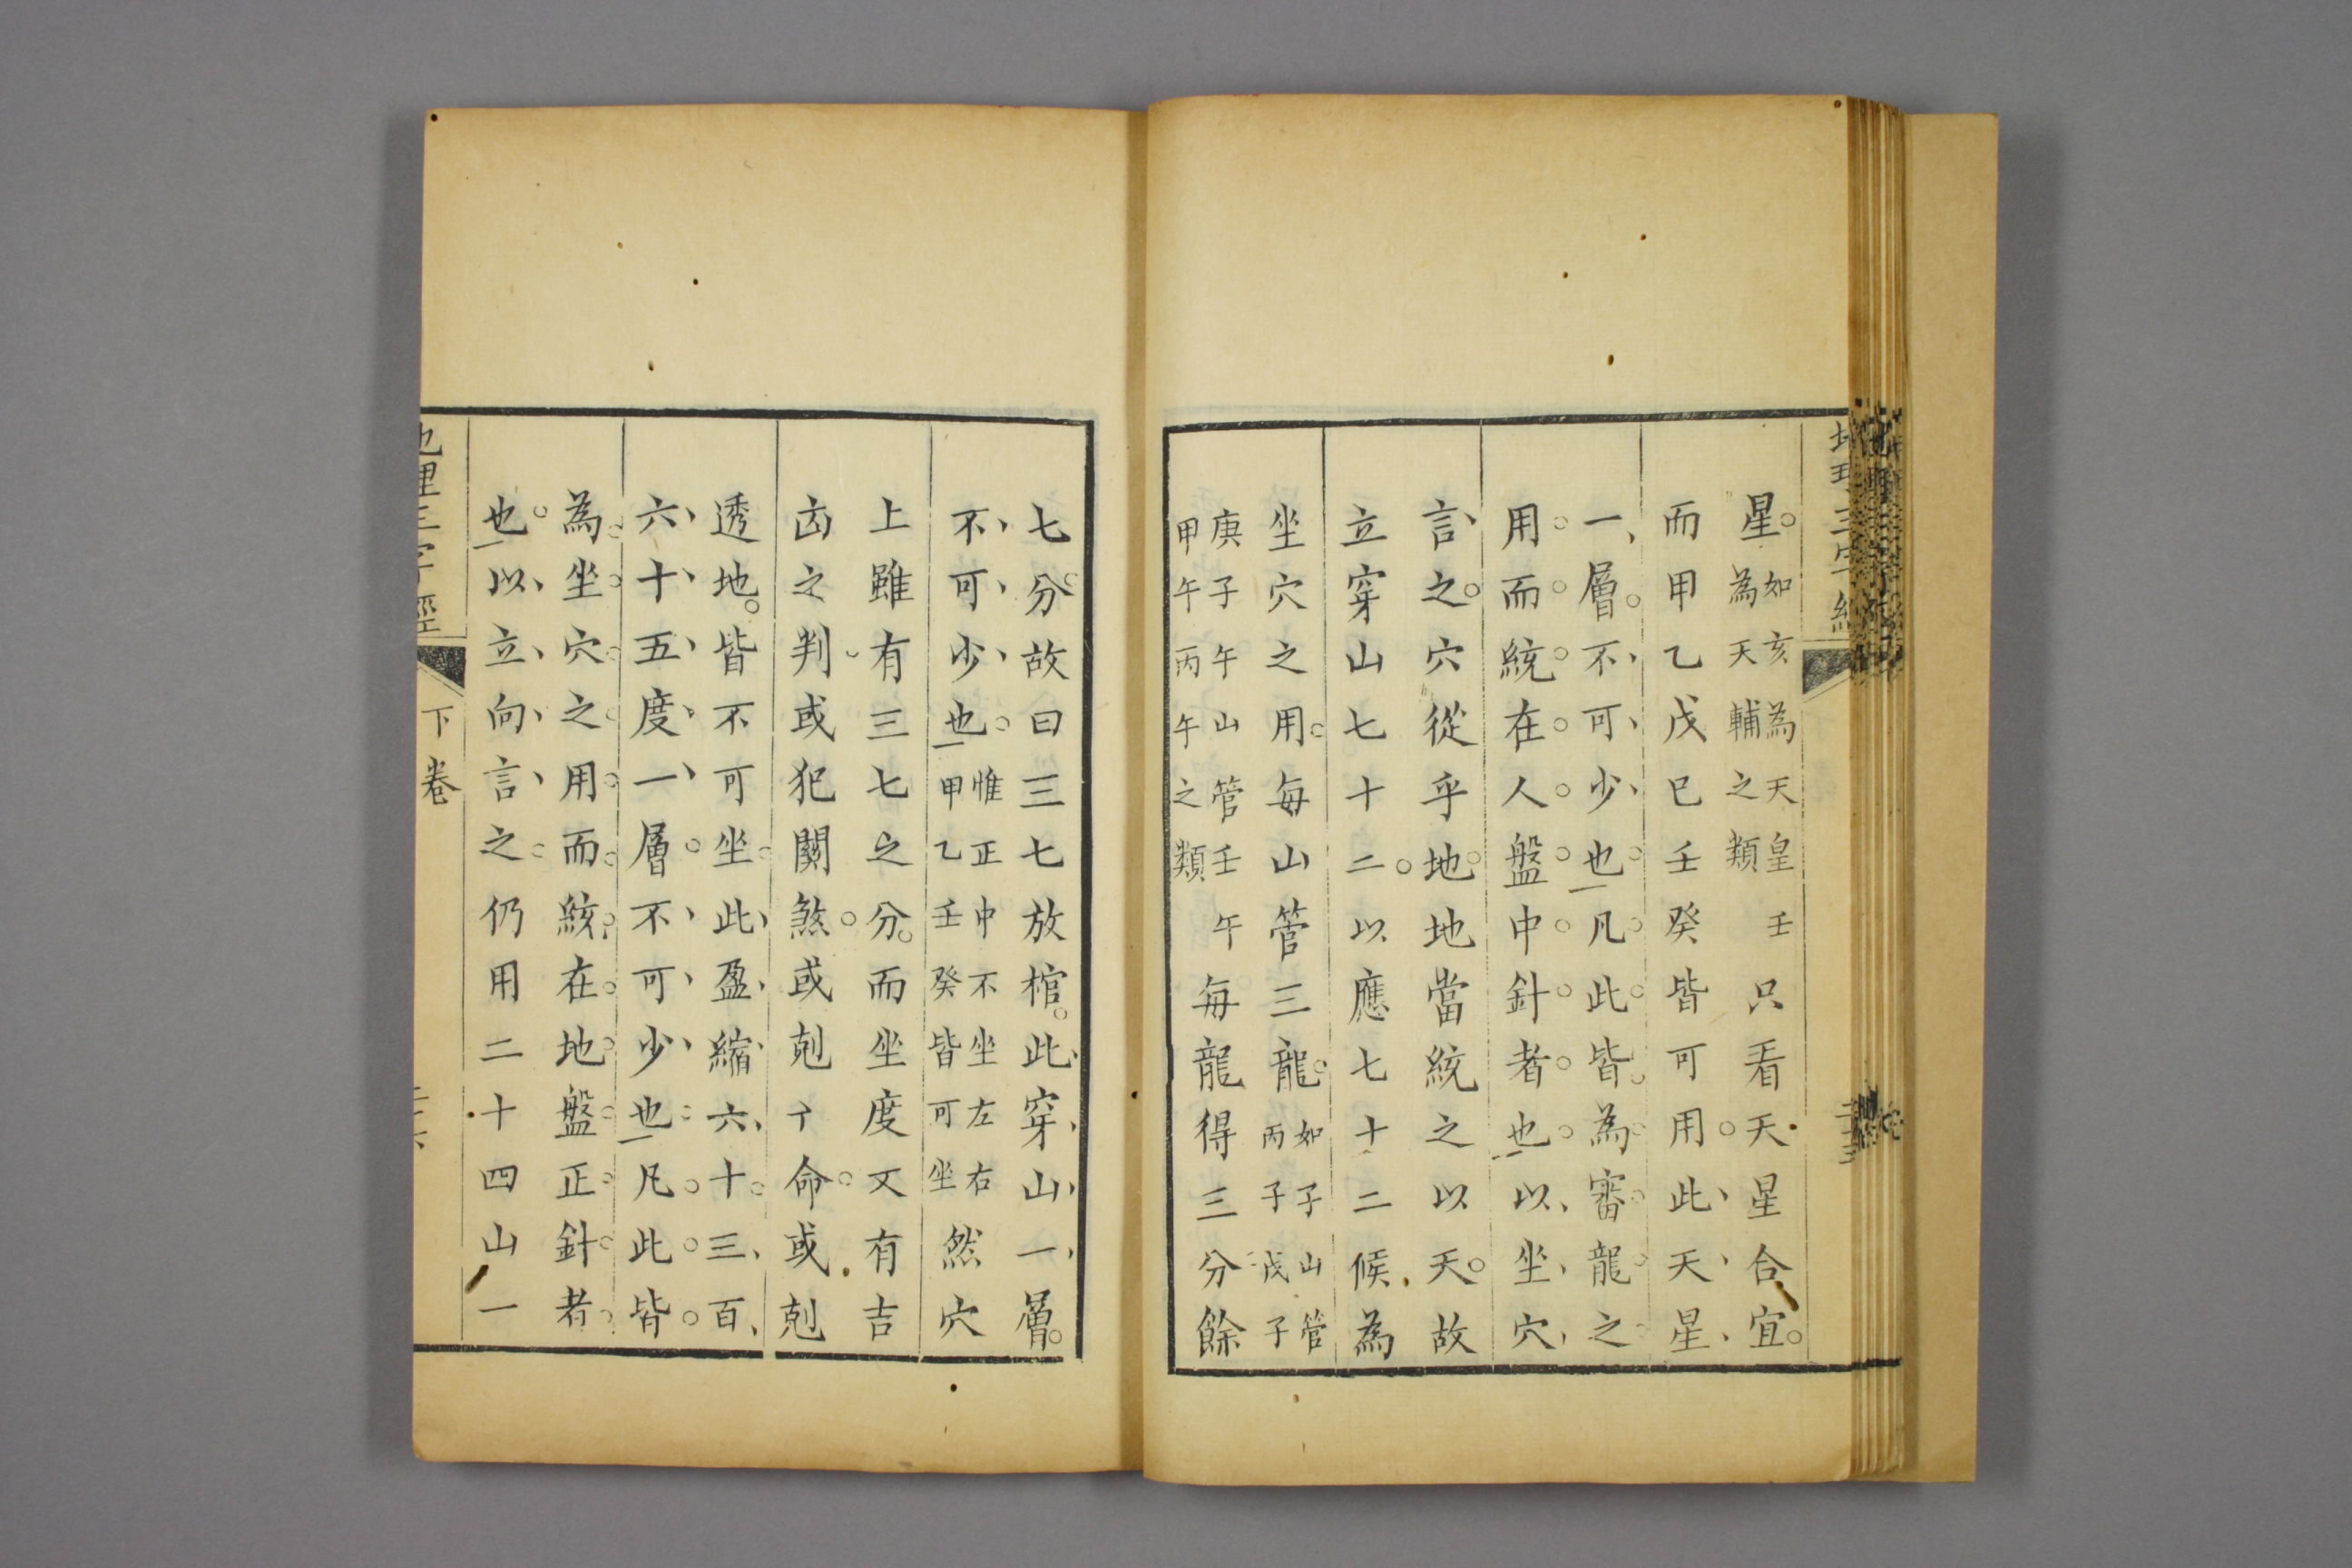 星。如亥為天皇壬為天輔之類只看天星合宜。
而甲乙戊巳壬癸皆可用。此天星
一層。不可少也。凡此皆為審龍之
用而統在人盤中針者也。以坐穴
言之。穴從乎地。地當統之以天。故
立穿山七十二。以應七十二候為
坐穴之用。每山管三龍。如子山管丙子戊子
庚子午山管壬午甲午丙午之類每龍得三分餘
地理三字經
七分。故曰三七放棺。此穿山一層。
不可少也。惟正中不坐左右甲乙壬癸皆可坐然穴
上雖有三七之分。而坐度又有吉
凶之判或犯關煞。或剋亡命。或剋
透地。皆不可坐。此盈縮六十。三百
六十五度一層。不可少也。凡此皆
為坐穴之用而統在地盤正針者
也。以立向言之。仍用二十四山一
地理三字經
下卷